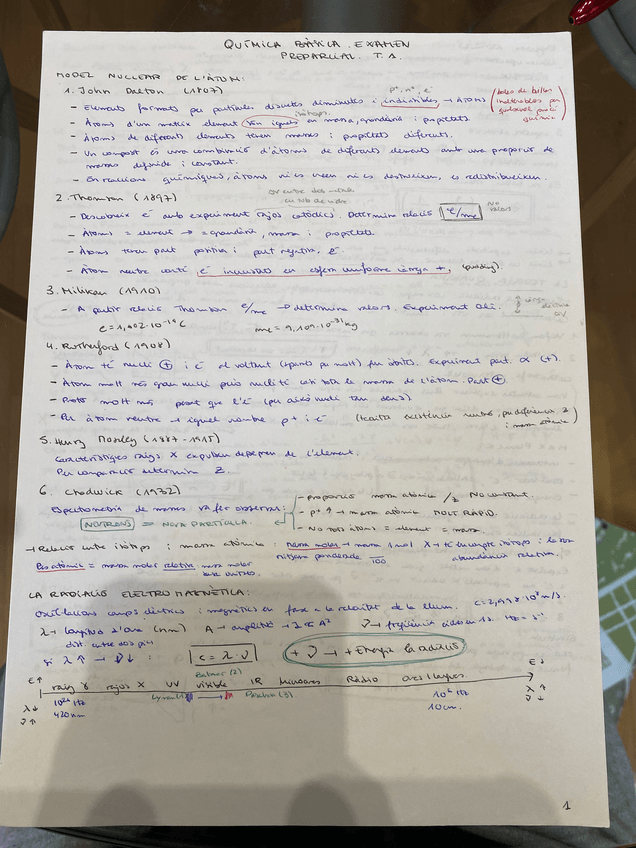 QUÍMICA BÀSICA. EXAMEN
PREPARCIAL. T.1.
MODEL NUCLEAR DE L'ÀTOM:
1. John Dalton (1807)
p+, n°, e-
- Elements formats per partícules discretes diminutes i indivisibles → ÀTOMS
(boles de billar indestructibles per qualsevol procés químic)
- Àtoms d'un mateix element són iguals en massa, grandària i propietats
isòtops.
- Àtoms de diferents elements tenen masses i propietats diferents.
- Un compost és una combinació d'àtoms de diferents elements amb una proporció de
masses definida i constant.
- En reaccions químiques, àtoms ni es creen ni es destrueixen, es redistribueixen.
2. Thomson (1897)
- Descobreix e- amb experiment rajos catòdics. Determina relació e/me
NO valors
- Àtoms = element → = grandària, massa i propietats.
- Àtoms tenen part positiva i part negativa, e-.
- Àtom neutre conté e- incrustats en esfera uniforme càrrega +. (pudding).
3. Milikan (1910)
- A partir relació Thomson e/me → determina valors. Experiment oli.
e = 1,602·10-19 C me = 9,109·10-31 kg
4. Rutherford (1908)
- Àtom té nucli + i e- al voltant (separats per molt) fan òrbites. Experiment part. α (+).
- Àtom molt més gran nucli però nucli té casi tota la massa de l'àtom. Part +
- Protó molt més pesat que l'e- (per això nucli tan dens)
- Per àtom neutre → igual nombre p+ i e-
5. Henry Mosley (1887-1915)
Característiques raigs X expulsen depenen de l'element.
Per comparació determina Z.
6. Chadwick (1932)
Espectrometria de masses va fer observar:
- proporció massa atòmica / Z NO constant.
- p+ ↑ → massa atòmica MOLT RÀPID.
- No tots àtoms = element = massa.
NEUTRONS ⇒ NOVA PARTÍCULA.
→ Relació entre isòtops i massa atòmica: massa molar → massa 1 mol X → té en compte isòtops i la seva
mitjana ponderada /100 abundància relativa.
Pes atòmic = massa molar relativa: massa molar
sense unitats.
LA RADIACIÓ ELECTROMAGNÈTICA:
Oscil·lacions camps elèctrics i magnètics en fase a la velocitat de la llum. c=2,998·10^8 m/s.
λ → longitud d'ona (nm) A → amplitud → I ∝ A² ν → freqüència cicles en 1s. Hz = s-1
dist. entre dos pics
si λ ↑ → ν ↓ : c = λ · ν + ν → + Energia la radiació
Balmer (2)
E ↑ E ↓
raig γ rajos X UV visible IR Microones Ràdio
λ ↓ Lyman (1) Paschen (3) λ ↑
ν ↑ 420 nm 10 cm. ν ↓
1